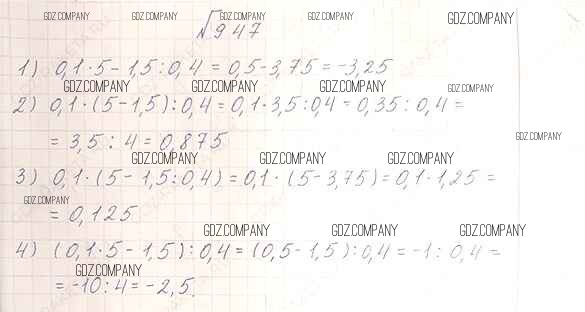 GDZ.COMPANY GDZ.COMPANY GDZ.COMPANY GDZ.COMPANY GDZ.COMPANY
№947
1) 0,1·5-1,5:0,4=0,5-3,75=-3,25
GDZ.COMPANY GDZ.COMPANY GDZ.COMPANY GDZ.COMPANY
2) 0,1·(5-1,5):0,4=0,1·3,5:0,4=0,35:0,4=
=3,5:4=0,875
GDZ.COMPANY
GDZ.COMPANY GDZ.COMPANY GDZ.COMPANY
3) 0,1·(5-1,5:0,4)=0,1·(5-3,75)=0,1·1,25=
GDZ.COMPANY
=0,125
GDZ.COMPANY GDZ.COMPANY GDZ.COMPANY
4) (0,1·5-1,5):0,4=(0,5-1,5):0,4=-1:0,4=
GDZ.COMPANY
=-10:4=-2,5.